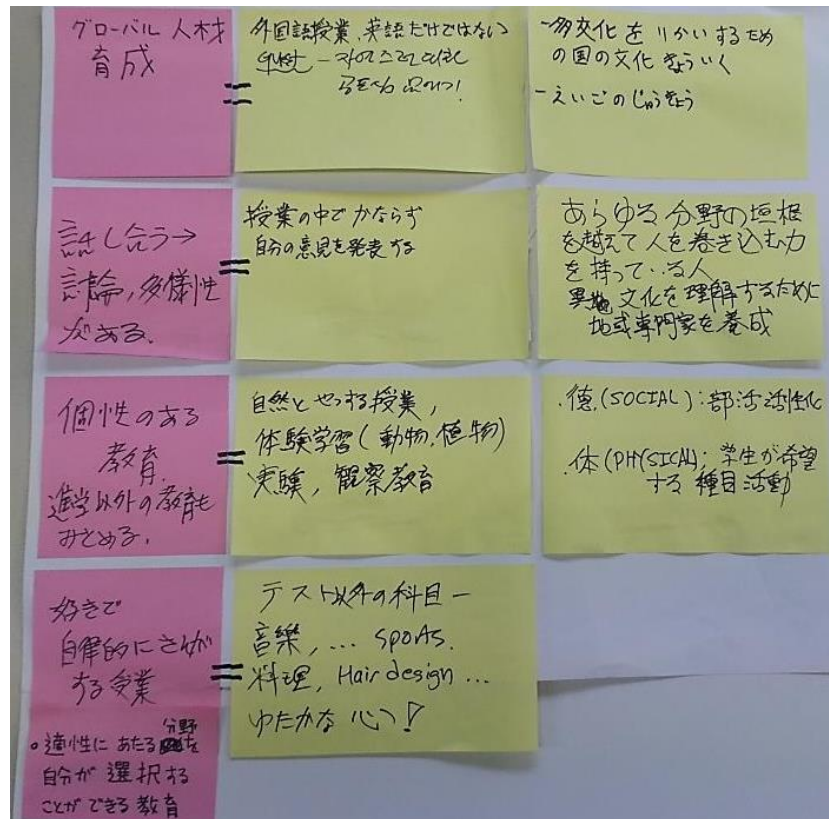 グローバル 人材
育成
=
外国語授業、英語だけではない
guest -
-多交化を りかいするため
の国の文化 きょういく
-えいごの じゅぎょう
話し合う→
討論,多様性
がある.
=
授業の中で かならず
自分の意見を発表する
あらゆる分野の垣根
を越えて人を巻き込む力
を持っている人
文化を理解するために
地域専門家を養成
個性のある
教育.
進学以外の教育も
みとめる.
=
自然と せっする授業,
体験学習(動物,植物)
実験, 観察教育
.徳.(SOCIAL):部活活性化
.体(PHYSICAL): 学生が希望
する 種目活動
好きで
自律的にさんが
する授業
=
テスト以外の科目ー
音楽, ... sports.
料理, Hair design ...
ゆたかな 心つ!
○適性に あたる 分野を
自分が 選択する
ことが できる 教育